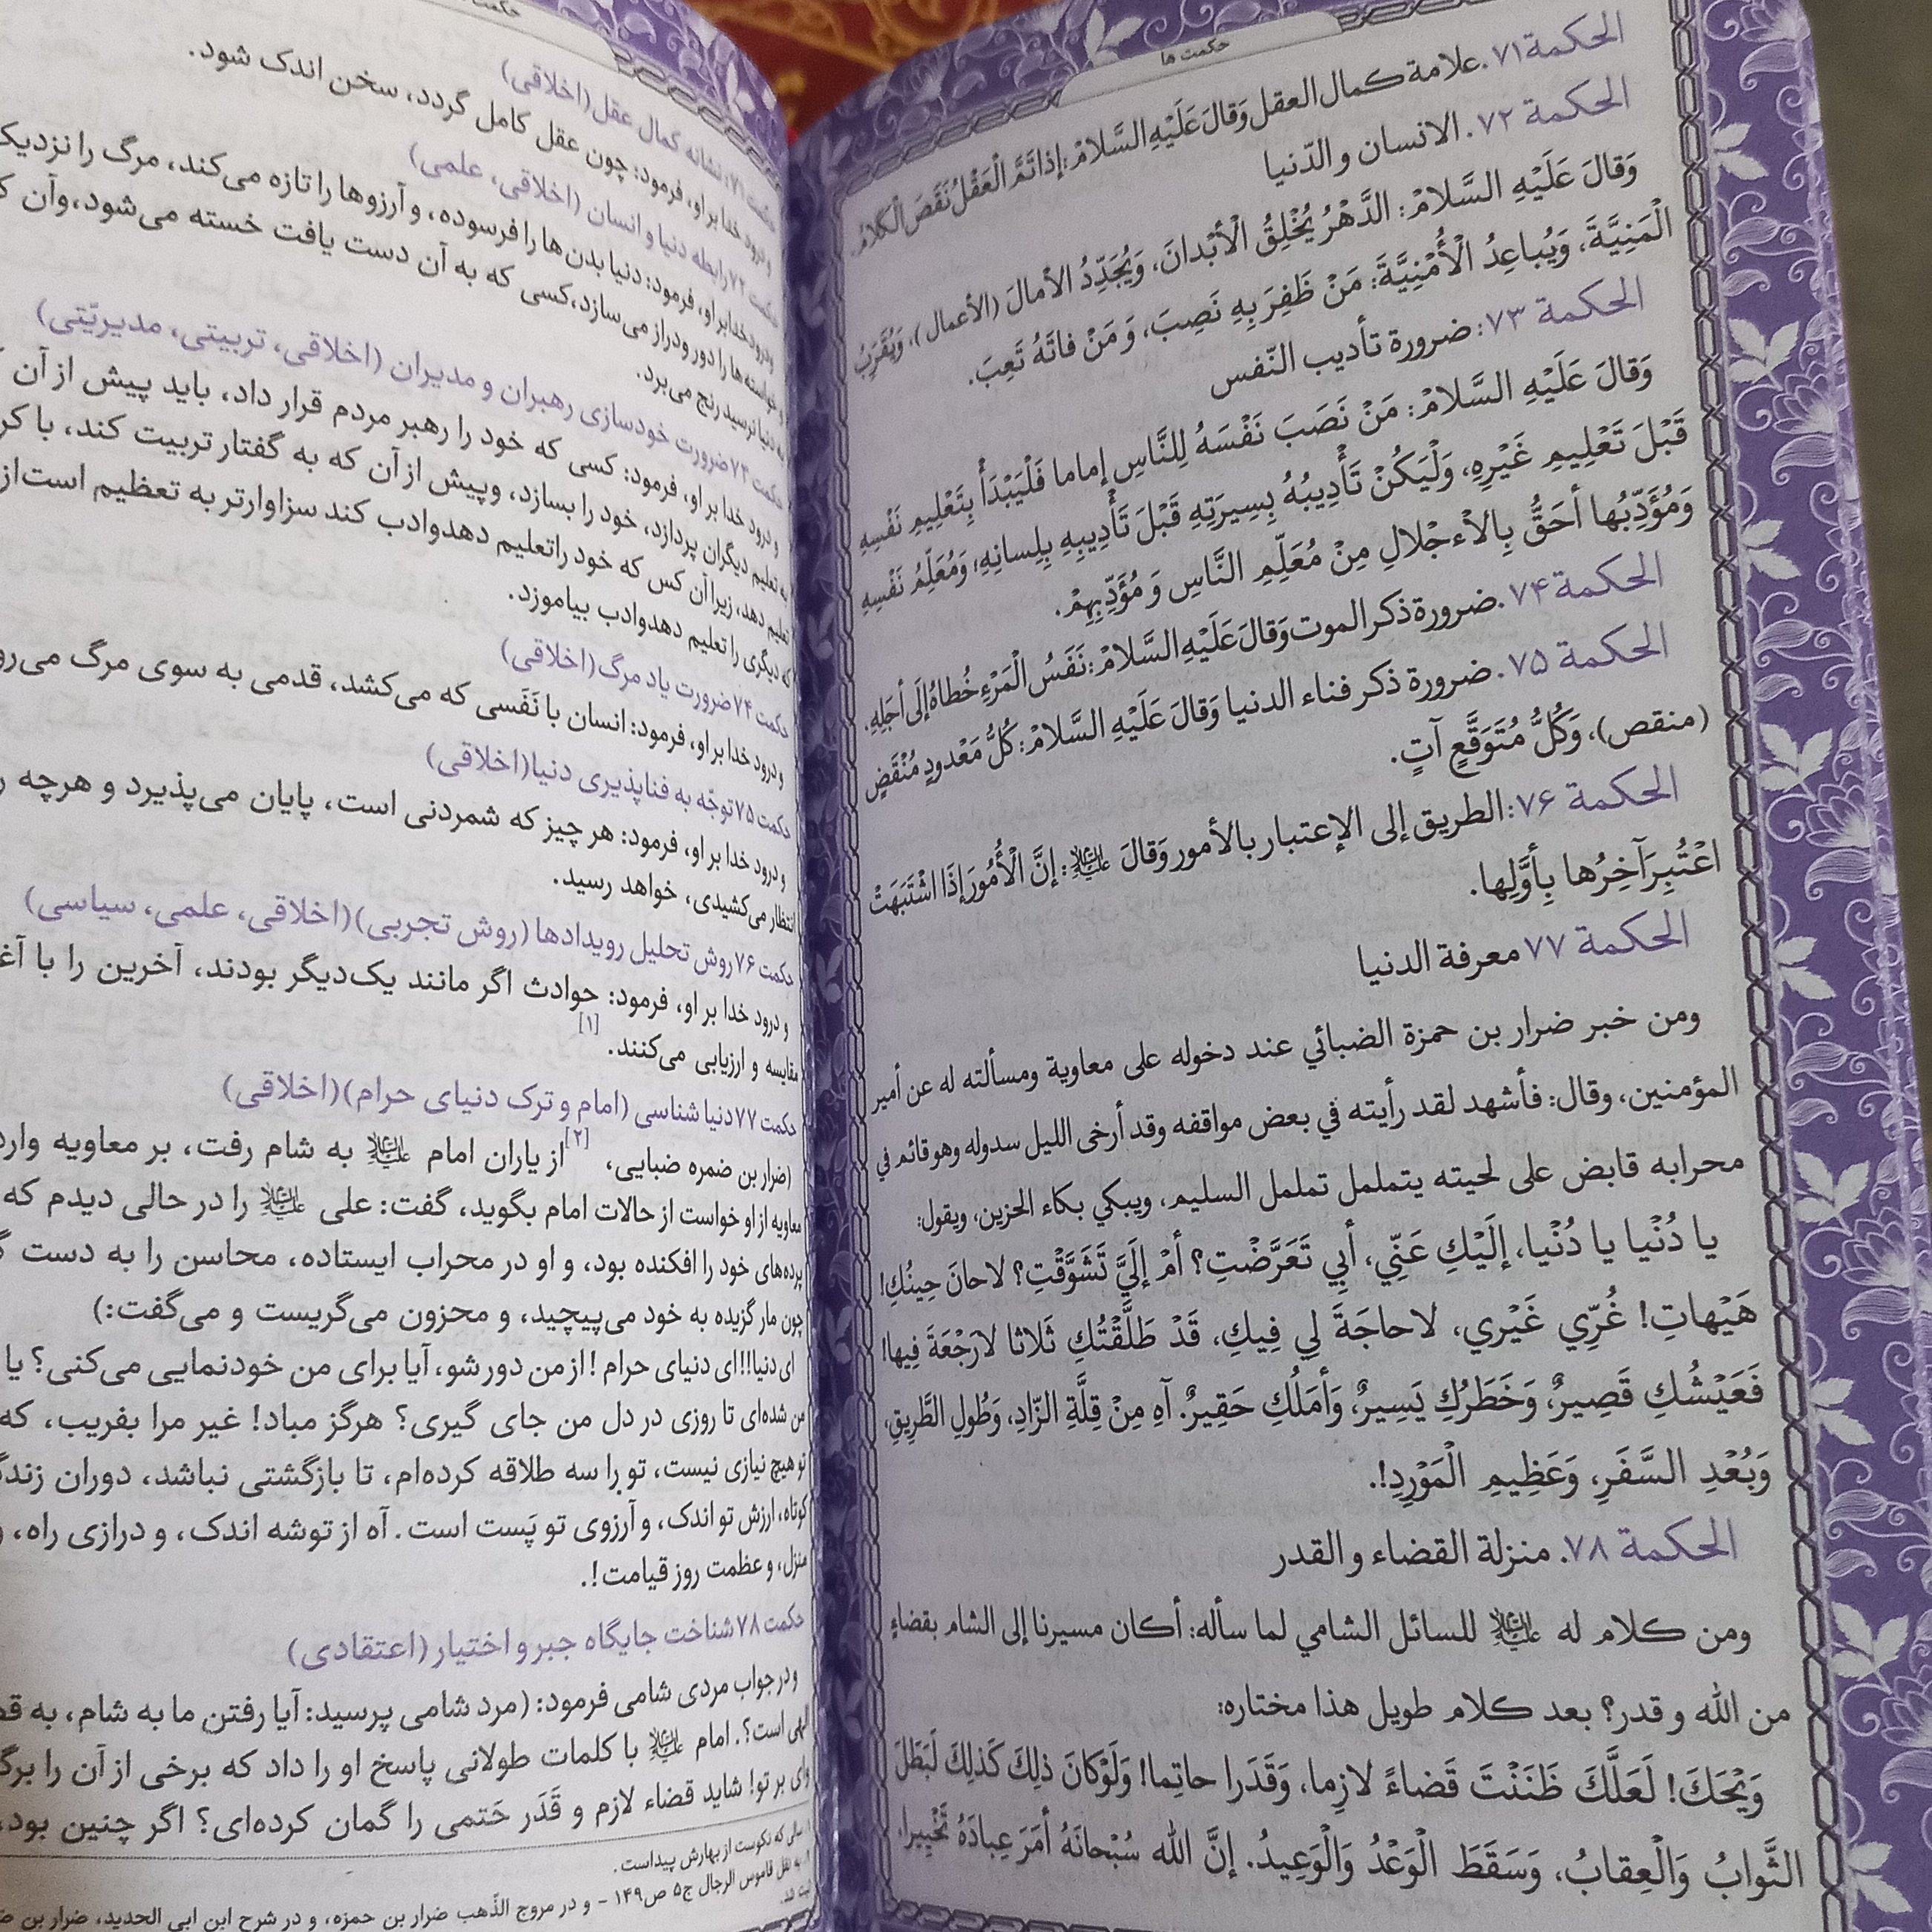 حکمت ها
الحكمة ۷۱. علامة كمال العقل وَقالَ عَلَيْهِ السَّلامُ: إذا تَمَّ الْعَقْلُ نَقَصَ الْكَلامُ.
الحكمة ۷۲. الانسان و الدّنيا
وَقالَ عَلَيْهِ السَّلامُ: الدَّهْرُ يُخْلِقُ الْأبْدانَ، وَيُجَدِّدُ الآمالَ (الأعمال)، وَيُقَرِّبُ
الْمَنِيَّةَ، وَيُباعِدُ الْأُمْنِيَّةَ: مَنْ ظَفِرَ بِهِ نَصِبَ، وَ مَنْ فاتَهُ تَعِبَ.
الحكمة ۷۳: ضرورة تأديب النّفس
وَقالَ عَلَيْهِ السَّلامُ: مَنْ نَصَبَ نَفْسَهُ لِلنَّاسِ إماما فَلْيَبْدَأْ بِتَعْلِيمِ نَفْسِهِ
قَبْلَ تَعْلِيمِ غَيْرِهِ، وَلْيَكُنْ تَأْدِيبُهُ بِسِيرَتِهِ قَبْلَ تَأْدِيبِهِ بِلِسانِهِ، وَمُعَلِّمُ نَفْسِهِ
وَمُؤَدِّبُها أحَقُّ بِالاْءجْلالِ مِنْ مُعَلِّمِ النَّاسِ وَ مُؤَدِّبِهِمْ.
الحكمة ۷۴. ضرورة ذكر الموت وَقالَ عَلَيْهِ السَّلامُ: نَفَسُ الْمَرْءِ خُطاهُ إلَى أجَلِهِ.
الحكمة ۷۵. ضرورة ذكر فناء الدنيا وَقالَ عَلَيْهِ السَّلامُ: كُلُّ مَعْدودٍ مُنْقَضٍ
(منقص)، وَكُلُّ مُتَوَقَّعٍ آتٍ.
الحكمة ۷۶: الطريق إلى الإعتبار بالأمور وَقالَ عليه السلام: إنَّ الْأُمُورَ إذَا اشْتَبَهَتْ
اعْتُبِرَ آخِرُها بِأوَّلِها.
الحكمة ۷۷ معرفة الدنيا
ومن خبر ضرار بن حمزة الضبائي عند دخوله على معاوية ومسألته له عن أمير
المؤمنين، وقال: فأشهد لقد رأيته في بعض مواقفه وقد أرخى الليل سدوله وهو قائم في
محرابه قابض على لحيته يتململ تململ السليم، ويبكي بكاء الحزين، ويقول:
يا دُنْيا يا دُنْيا، إلَيْكِ عَنِّي، أبِي تَعَرَّضْتِ؟ أمْ إلَيَّ تَشَوَّقْتِ؟ لا حانَ حِينُكِ!
هَيْهاتِ! غُرِّي غَيْرِي، لا حاجَةَ لِي فِيكِ، قَدْ طَلَّقْتُكِ ثَلاثا لا رَجْعَةَ فِيها!
فَعَيْشُكِ قَصِيرٌ، وَخَطَرُكِ يَسِيرٌ، وَأمَلُكِ حَقِيرٌ. آهِ مِنْ قِلَّةِ الزّادِ، وَطُولِ الطَّرِيقِ،
وَبُعْدِ السَّفَرِ، وَعَظِيمِ الْمَوْرِدِ!.
الحكمة ۷۸. منزلة القضاء و القدر
ومن كلام له عليه السلام للسائل الشامي لما سأله: أكان مسيرنا إلى الشام بقضاءٍ
من الله و قدر؟ بعد كلام طويل هذا مختاره:
وَيْحَكَ! لَعَلَّكَ ظَنَنْتَ قَضاءً لازِما، وَقَدَرا حاتِما! وَلَوْ كانَ ذلِكَ كَذلِكَ لَبَطَلَ
الثَّوابُ وَالْعِقابُ، وَسَقَطَ الْوَعْدُ وَالْوَعِيدُ. إنَّ الله سُبْحانَهُ أمَرَ عِبادَهُ تَخْيِيرا،
حکمت ۷۱: نشانه کمال عقل (اخلاقی)
و درود خدا بر او، فرمود: چون عقل کامل گردد، سخن اندک شود.
حکمت ۷۲ رابطه دنیا و انسان (اخلاقی، علمی)
و درود خدا بر او، فرمود: دنیا بدن ها را فرسوده، و آرزوها را تازه می‌کند، مرگ را نزدیک
و خواسته ها را دور و دراز می‌سازد، کسی که به آن دست یافت خسته می‌شود، وآن
به دنیا نرسید رنج می‌برد.
حکمت ۷۳ ضرورت خودسازی رهبران و مدیران (اخلاقی، تربیتی، مدیریّتی)
و درود خدا بر او، فرمود: کسی که خود را رهبر مردم قرار داد، باید پیش از آن
به تعلیم دیگران پردازد، خود را بسازد، وپیش از آن که به گفتار تربیت کند، با
تعلیم دهد، زیرا آن کس که خود را تعلیم دهد وادب کند سزاوارتر به تعظیم است از
که دیگری را تعلیم دهد وادب بیاموزد.
حکمت ۷۴ ضرورت یاد مرگ (اخلاقی)
و درود خدا بر او، فرمود: انسان با نَفَسی که می‌کشد، قدمی به سوی مرگ
حکمت ۷۵ توجّه به فناپذیری دنیا (اخلاقی)
و درود خدا بر او، فرمود: هر چیز که شمردنی است، پایان می‌پذیرد و هرچه
انتظار می‌کشیدی، خواهد رسید.
حکمت ۷۶ روش تحلیل رویدادها (روش تجربی) (اخلاقی، علمی، سیاسی)
و درود خدا بر او، فرمود: حوادث اگر مانند یک‌دیگر بودند، آخرین را با
مقایسه و ارزیابی می‌کنند. [۱]
حکمت ۷۷ دنیا شناسی (امام و ترک دنیای حرام) (اخلاقی)
(ضرار بن ضمره ضبایی، [۲] از یاران امام علیه السلام به شام رفت، بر معاویه
معاویه از او خواست از حالات امام بگوید، گفت: علی علیه السلام را در حالی دیدم که
پرده‌های خود را افکنده بود، و او در محراب ایستاده، محاسن را به دست
چون مار گزیده به خود می‌پیچید، و محزون می‌گریست و می‌گفت:)
ای دنیا!! ای دنیای حرام! از من دور شو، آیا برای من خودنمایی می‌کنی؟ یا
من شده‌ای تا روزی در دل من جای گیری؟ هرگز مباد! غیر مرا بفریب، که
تو هیچ نیازی نیست، تو را سه طلاقه کرده‌ام، تا بازگشتی نباشد، دوران
کوتاه، ارزش تو اندک، و آرزوی تو پَست است. آه از توشه اندک، و درازی راه،
منزل، و عظمت روز قیامت!.
حکمت ۷۸ شناخت جایگاه جبر و اختیار (اعتقادی)
و در جواب مردی شامی فرمود: (مرد شامی پرسید: آیا رفتن ما به شام، به
الهی است؟. امام علیه السلام با کلمات طولانی پاسخ او را داد که برخی از آن را
وای بر تو! شاید قضاء لازم و قَدَر حَتمی را گمان کرده‌ای؟ اگر چنین بود،
سالی که نکوست از بهارش پیداست.
به نقل قاموس الرجال ج۵ ص۱۴۹ - و در مروج الذّهب ضرار بن حمزه، و در شرح ابن ابی الحدید، ضرار بن